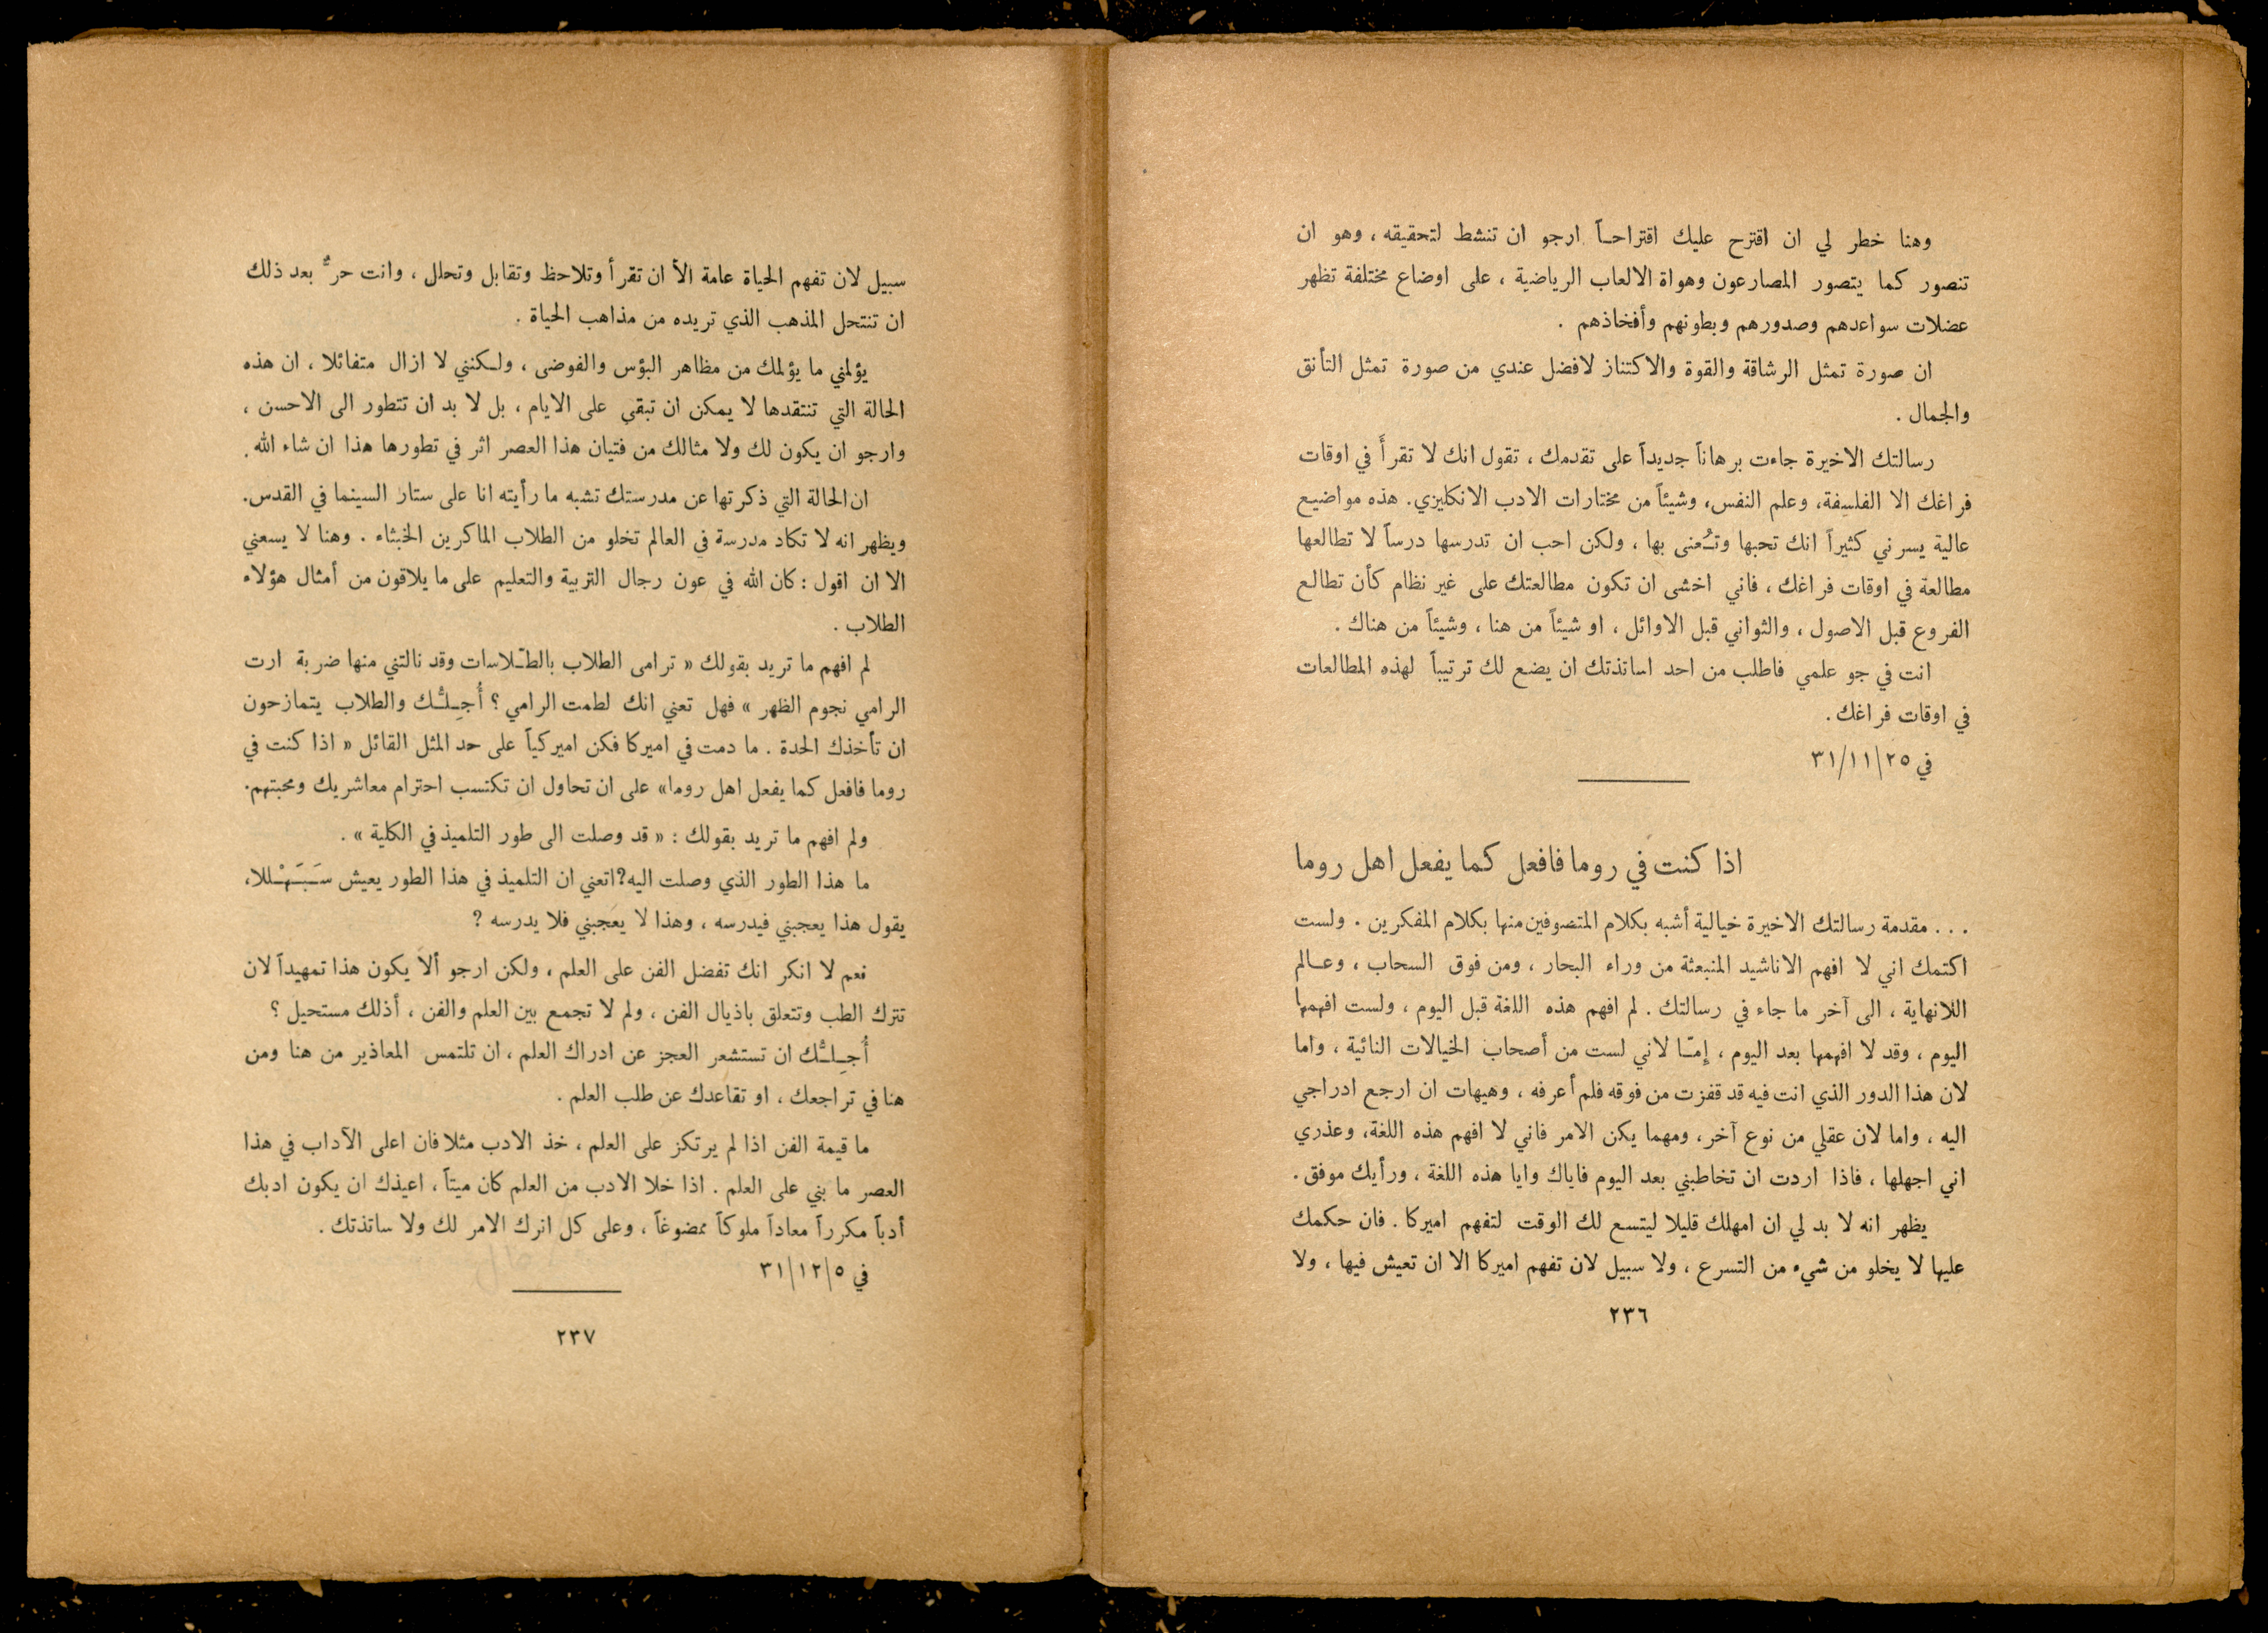 وهنا خطر لي ان اقترح عليك اقتراحـاً ارجو ان تنشط لتحقيقه ، وهو ان
تنصور كما يتصور المصارعون وهواة الالعاب الرياضية ، على اوضاع مختلفة تظهر
عضلات سواعدهم وصدورهم وبطونهم وأفخاذهم .
ان صورة تمثل الرشاقة والقوة والاكتناز لافضل عندي من صورة تمثل التأنق
والجمال .
رسالتك الاخيرة جاءت برهاناً جديداً على تقدمك ، تقول انك لا تقرأَ في اوقات
فراغك الا الفلسفة، وعلم النفس، وشيئاً من مختارات الادب الانكليزي. هذه مواضيع
عالية يسرني كثيراً انك تحبها وتـُعنى بها ، ولكن احب ان تدرسها درساً لا تطالعها
مطالعة في اوقات فراغك ، فاني اخشى ان تكون مطالعتك على غير نظام كأن تطالع
الفروع قبل الاصول ، والثواني قبل الاوائل ، او شيئاً من هنا ، وشيئاً من هناك .
انت في جو علمي فاطلب من احد اساتذتك ان يضع لك ترتيباً لهذه المطالعات
في اوقات فراغك .
في ٢٥/١١/٣١
اذا كنت في روما فافعل كما يفعل اهل روما
. . . مقدمة رسالتك الاخيرة خيالية أشبه بكلام المتصوفين منها بكلام المفكرين . ولست
اكتمك اني لا افهم الاناشيد المنبعثة من وراء البحار ، ومن فوق السحاب ، وعـالم
اللانهاية ، الى آخر ما جاء في رسالتك . لم افهم هذه اللغة قبل اليوم ، ولست افهمها
اليوم ، وقد لا افهمها بعد اليوم ، إِمـّا لاني لست من أصحاب الخيالات النائية ، واما
لان هذا الدور الذي انت فيه قد قفزت من فوقه فلم أعرفه ، وهيهات ان ارجع ادراجي
اليه ، واما لان عقلي من نوع آخر، ومهما يكن الامر فاني لا افهم هذه اللغة، وعذري
اني اجهلها ، فاذا اردت ان تخاطبني بعد اليوم فاياك وايا هذه اللغة ، ورأيك موفق .
يظهر انه لا بد لي ان امهلك قليلا ليتسع لك الوقت لتفهم اميركا . فان حكمك
عليها لا يخلو من شيء من التسرع ، ولا سبيل لان تفهم اميركا الا ان تعيش فيها ، ولا
٢٣٦
سبيل لان تفهم الحياة عامة الاَّ ان تقرأ وتلاحظ وتقابل وتحلل ، وانت حرٌّ بعد ذلك
ان تنتحل المذهب الذي تريده من مذاهب الحياة .
يؤلمني ما يؤلمك من مظاهر البؤس والفوضى ، ولـكنني لا ازال متفائلا ، ان هذه
الحالة التي تنتقدها لا يمكن ان تبقى على الايام ، بل لا بد ان تتطور الى الاحسن ،
وارجو ان يكون لك ولا مثالك من فتيان هذا العصر اثر في تطورها هذا ان شاء الله .
ان الحالة التي ذكرتها عن مدرستك تشبه ما رأيته انا على ستار السينما في القدس.
ويظهر انه لا تكاد مدرسة في العالم تخلو من الطلاب الماكرين الخبثاء . وهنا لا يسعني
الا ان اقول : كان الله في عون رجال التربية والتعليم على ما يلاقون من أمثال هؤلاء
الطلاب .
لم افهم ما تريد بقولك « ترامى الطلاب بالطـّلاسات وقد نالتني منها ضربة ارت
الرامي نجوم الظهر » فهل تعني انك لطمت الرامي ؟ أُجِـلـُّـك والطلاب يتمازحون
ان تأخذك الحدة . ما دمت في اميركا فكن اميركياً على حد المثل القائل « اذا كنت في
روما فافعل كما يفعل اهل روما» على ان تحاول ان تكتسب احترام معاشريك ومحبتهم.
ولم افهم ما تريد بقولك : « قد وصلت الى طور التلميذ في الكلية » .
ما هذا الطور الذي وصلت اليه؟ اتعني ان التلميذ في هذا الطور يعيش سَـبَـهْـللا،
يقول هذا يعجبني فيدرسه ، وهذا لا يعجبني فلا يدرسه ؟
نعم لا انكر انك تفضل الفن على العلم ، ولكن ارجو ألاَ يكون هذا تمهيداً لان
تترك الطب وتتعلق باذيال الفن ، ولم لا تجمع بين العلم والفن ، أذلك مستحيل ؟
أُجِـلـُّـك ان تستشعر العجز عن ادراك العلم ، ان تلتمس المعاذير من هنا ومن
هنا في تراجعك ، او تقاعدك عن طلب العلم .
ما قيمة الفن اذا لم يرتكز على العلم ، خذ الادب مثلا فان اعلى الآداب في هذا
العصر ما بني على العلم . اذا خلا الادب من العلم كان ميتاً ، اعيذك ان يكون ادبك
أدباً مكرراً معاداً ملوكاً ممضوغاً ، وعلى كل اترك الامر لك ولا ساتذتك .
في ٥/١٢/٣١
٢٣٧